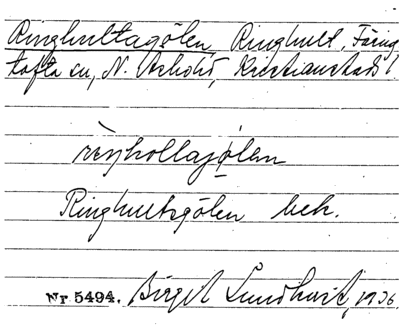 Ringhultagölen Ringhult, Färing
tofta sn, N. Åsbohd, Kristianstads l
rèŋhollajølen
Ringhultsgölen bek.
Nr 5494. Birgit Lundkvist, 1936